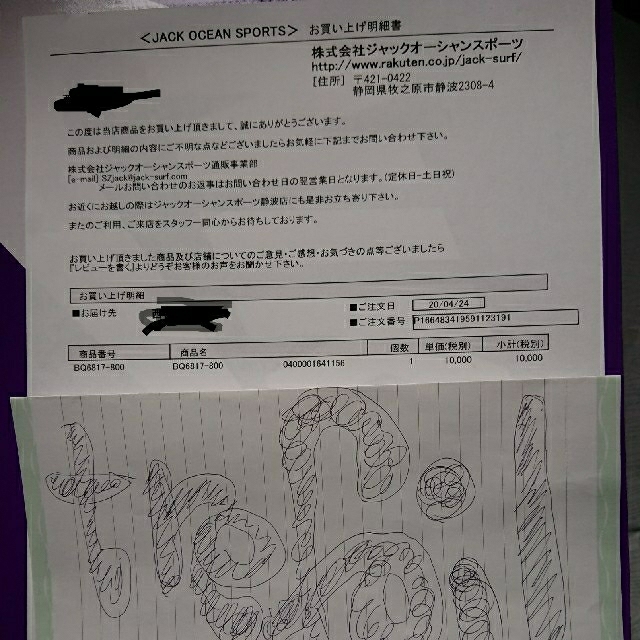 ＜JACK OCEAN SPORTS＞ お買い上げ明細書
株式会社ジャックオーシャンスポーツ
http://www.rakuten.co.jp/jack-surf/
[住所] 〒421-0422
静岡県牧之原市静波2308-4
この度は当店商品をお買い上げ頂きまして、誠にありがとうございます。
商品および明細の内容にご不明な点などございましたらお気軽に下記までお問い合わせ下さい。
株式会社ジャックオーシャンスポーツ通販事業部
[e-mail] SZjack@jack-surf.com
メールお問い合わせのお返事はお問い合わせ日の翌営業日となります。(定休日-土日祝)
お近くにお越しの際はジャックオーシャンスポーツ静波店にも是非お立ち寄り下さい。
またのご利用、ご来店をスタッフ一同心からお待ちしております。
お買い上げ頂きました商品及び店舗についてのご意見・ご感想・お気づきの点等ございましたら
『レビューを書く』よりどうぞお客様のお声をお聞かせ下さい。
お買い上げ明細
■お届け先
■ご注文日 20/04/24
■ご注文番号 P166483419591123191
商品番号 商品名 個数 単価(税別) 小計(税別)
BQ6817-800 BQ6817-800 0400001641156 1 10,000 10,000